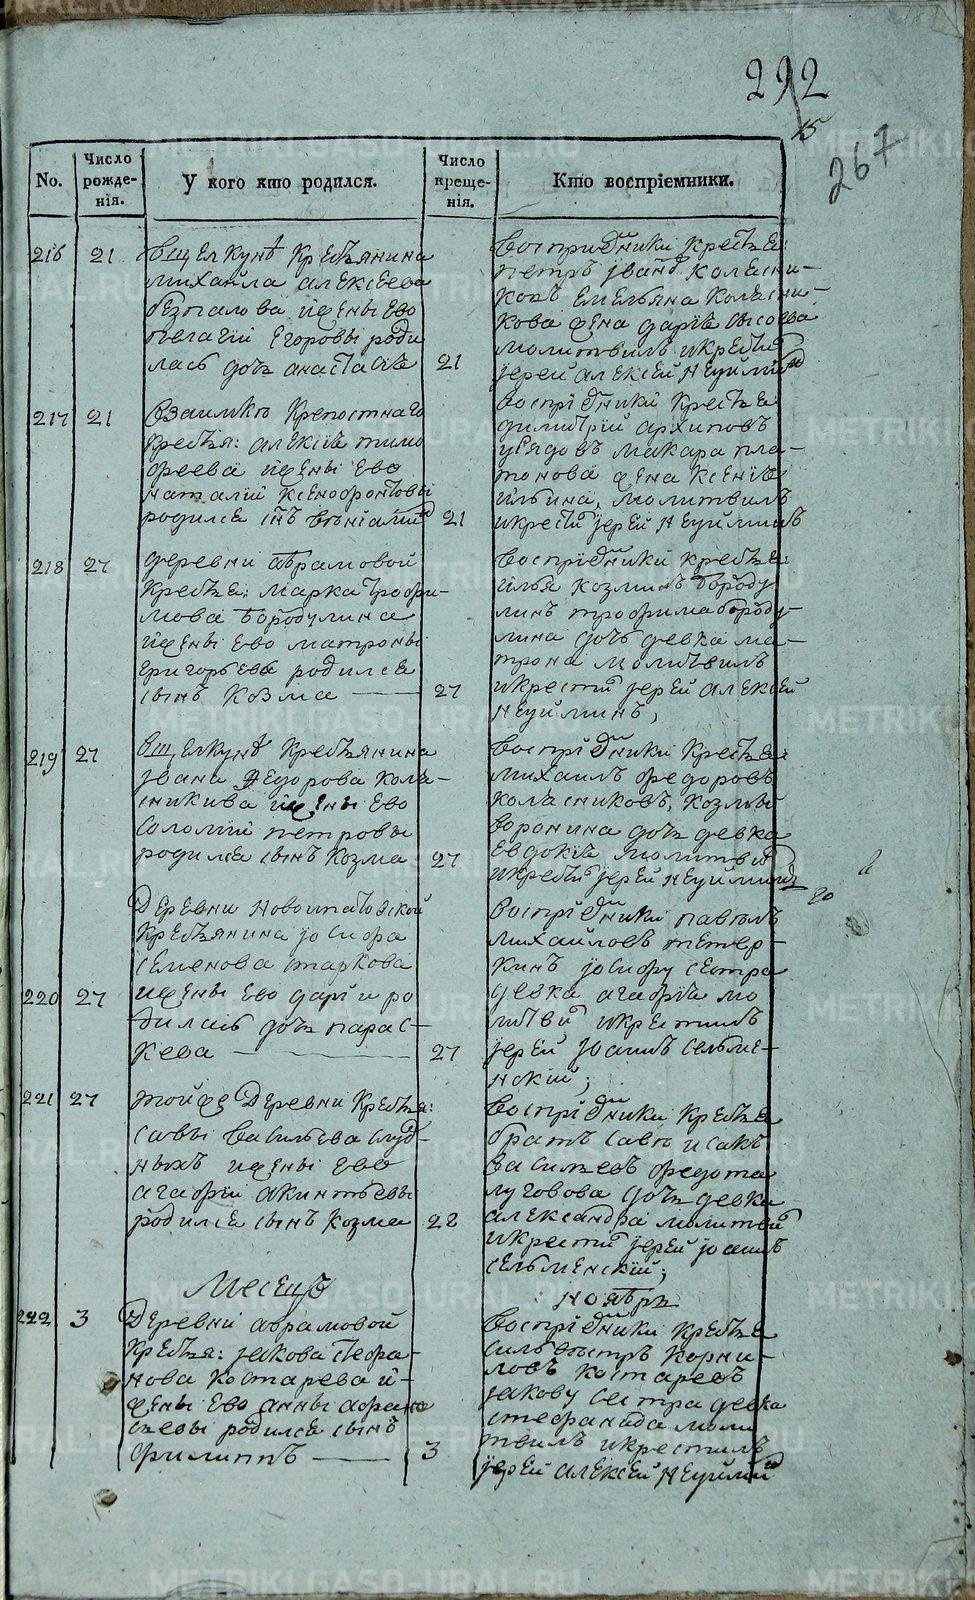 292
15
267
No.
Число рожде-нія.
У кого кто родился.
Число креще-нія.
Кто воспріемники.
216 21 Вщелкунѣ Крестьянина
михайла алексеева
безпалова ижены ево
пелагіи Егоровы роди
лась дочь анастасіѣ 21
Воспріемники крестьяне:
петръ іванъ колесни-
ковъ Емельяна колесни-
кова жена даріѣ
молитвилъ икрестилъ
іерей алексей Неуйминъ
217 21 Взаимкѣ Крепостнаго
крестья: алексіѣ тимо
феева ижены ево
наталіи ксенофонтовы
родилсе сынъ веніаминъ 21
Воспріемники крестьяне
димитрій архиповъ
урядовъ макара пла-
тонова жена ксеніѣ
ильина, молитвилъ
икрестилъ іерей Неуйминъ
218 27 деревни абрамовой
крестье: марка трофи-
мова бородулина
ижены ево матроны
григорьевы родилсе
сынъ козма 27
Воспріемники крестье:
илья козминъ бороду
линъ трофима бороду-
лина дочь девка ма-
трона молитвилъ
икрестилъ іерей алексей
Неуйминъ,
219 27 Вщелкунѣ Крестьянина
івана Федорова кола-
сникива ижены ево
соломіи петровы
родилсе сынъ козма 27
Воспріемники крестье:
михаилъ федоровъ
коласниковъ, козмы
воронина дочь девка
Евдокіѣ молитвилъ
икрестилъ іерей Неуйминъ
20
Деревни новоипатовской
Крестьянина іосифа
семенова старкова
220 27 ижены ево даріи ро
дилась дочь парас-
кева 27
Воспріемники павелъ
михайловъ тетер-
кинъ іосифу сестра
девка агафіѣ мо
литвилъ икрестилъ
іерей іоаннъ сельме-
нскій;
221 27 тойже Деревни Крестье:
савы васильева слуд-
ныхъ ижены ево
агафіи акинтьевы
родилсе сынъ козма 28
Воспріемники крестье
братъ савы исакъ
васильевъ федота
луговова дочь девка
александра молитвилъ
икрестилъ іерей іоаннъ
сельменскій;
Месецъ
ноябрь
222 3 Деревни абрамовой
крестья: іякова стефа-
нова костарева и-
жены ево анны афана
сьевы родилсе сынъ
филиппъ 3
Воспріемники крестье
сильвестръ корни-
ловъ костаревъ
іякову сестра девка
стефанида моли
твилъ икрестилъ
іерей алексей Неуйминъ
METRIKI.GASO-URAL.RU